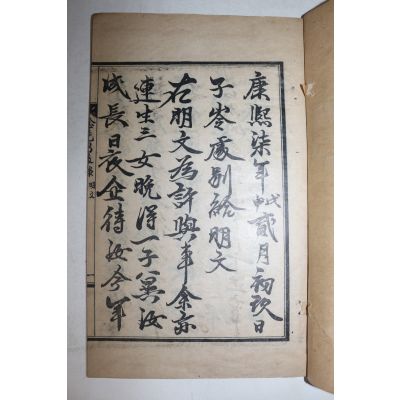 康熙柒年戊申貳月初玖日
子岺處別給明文
右明文為許與事余亦
連生三女晩得一子冀汝
成長日夜企待汝今年